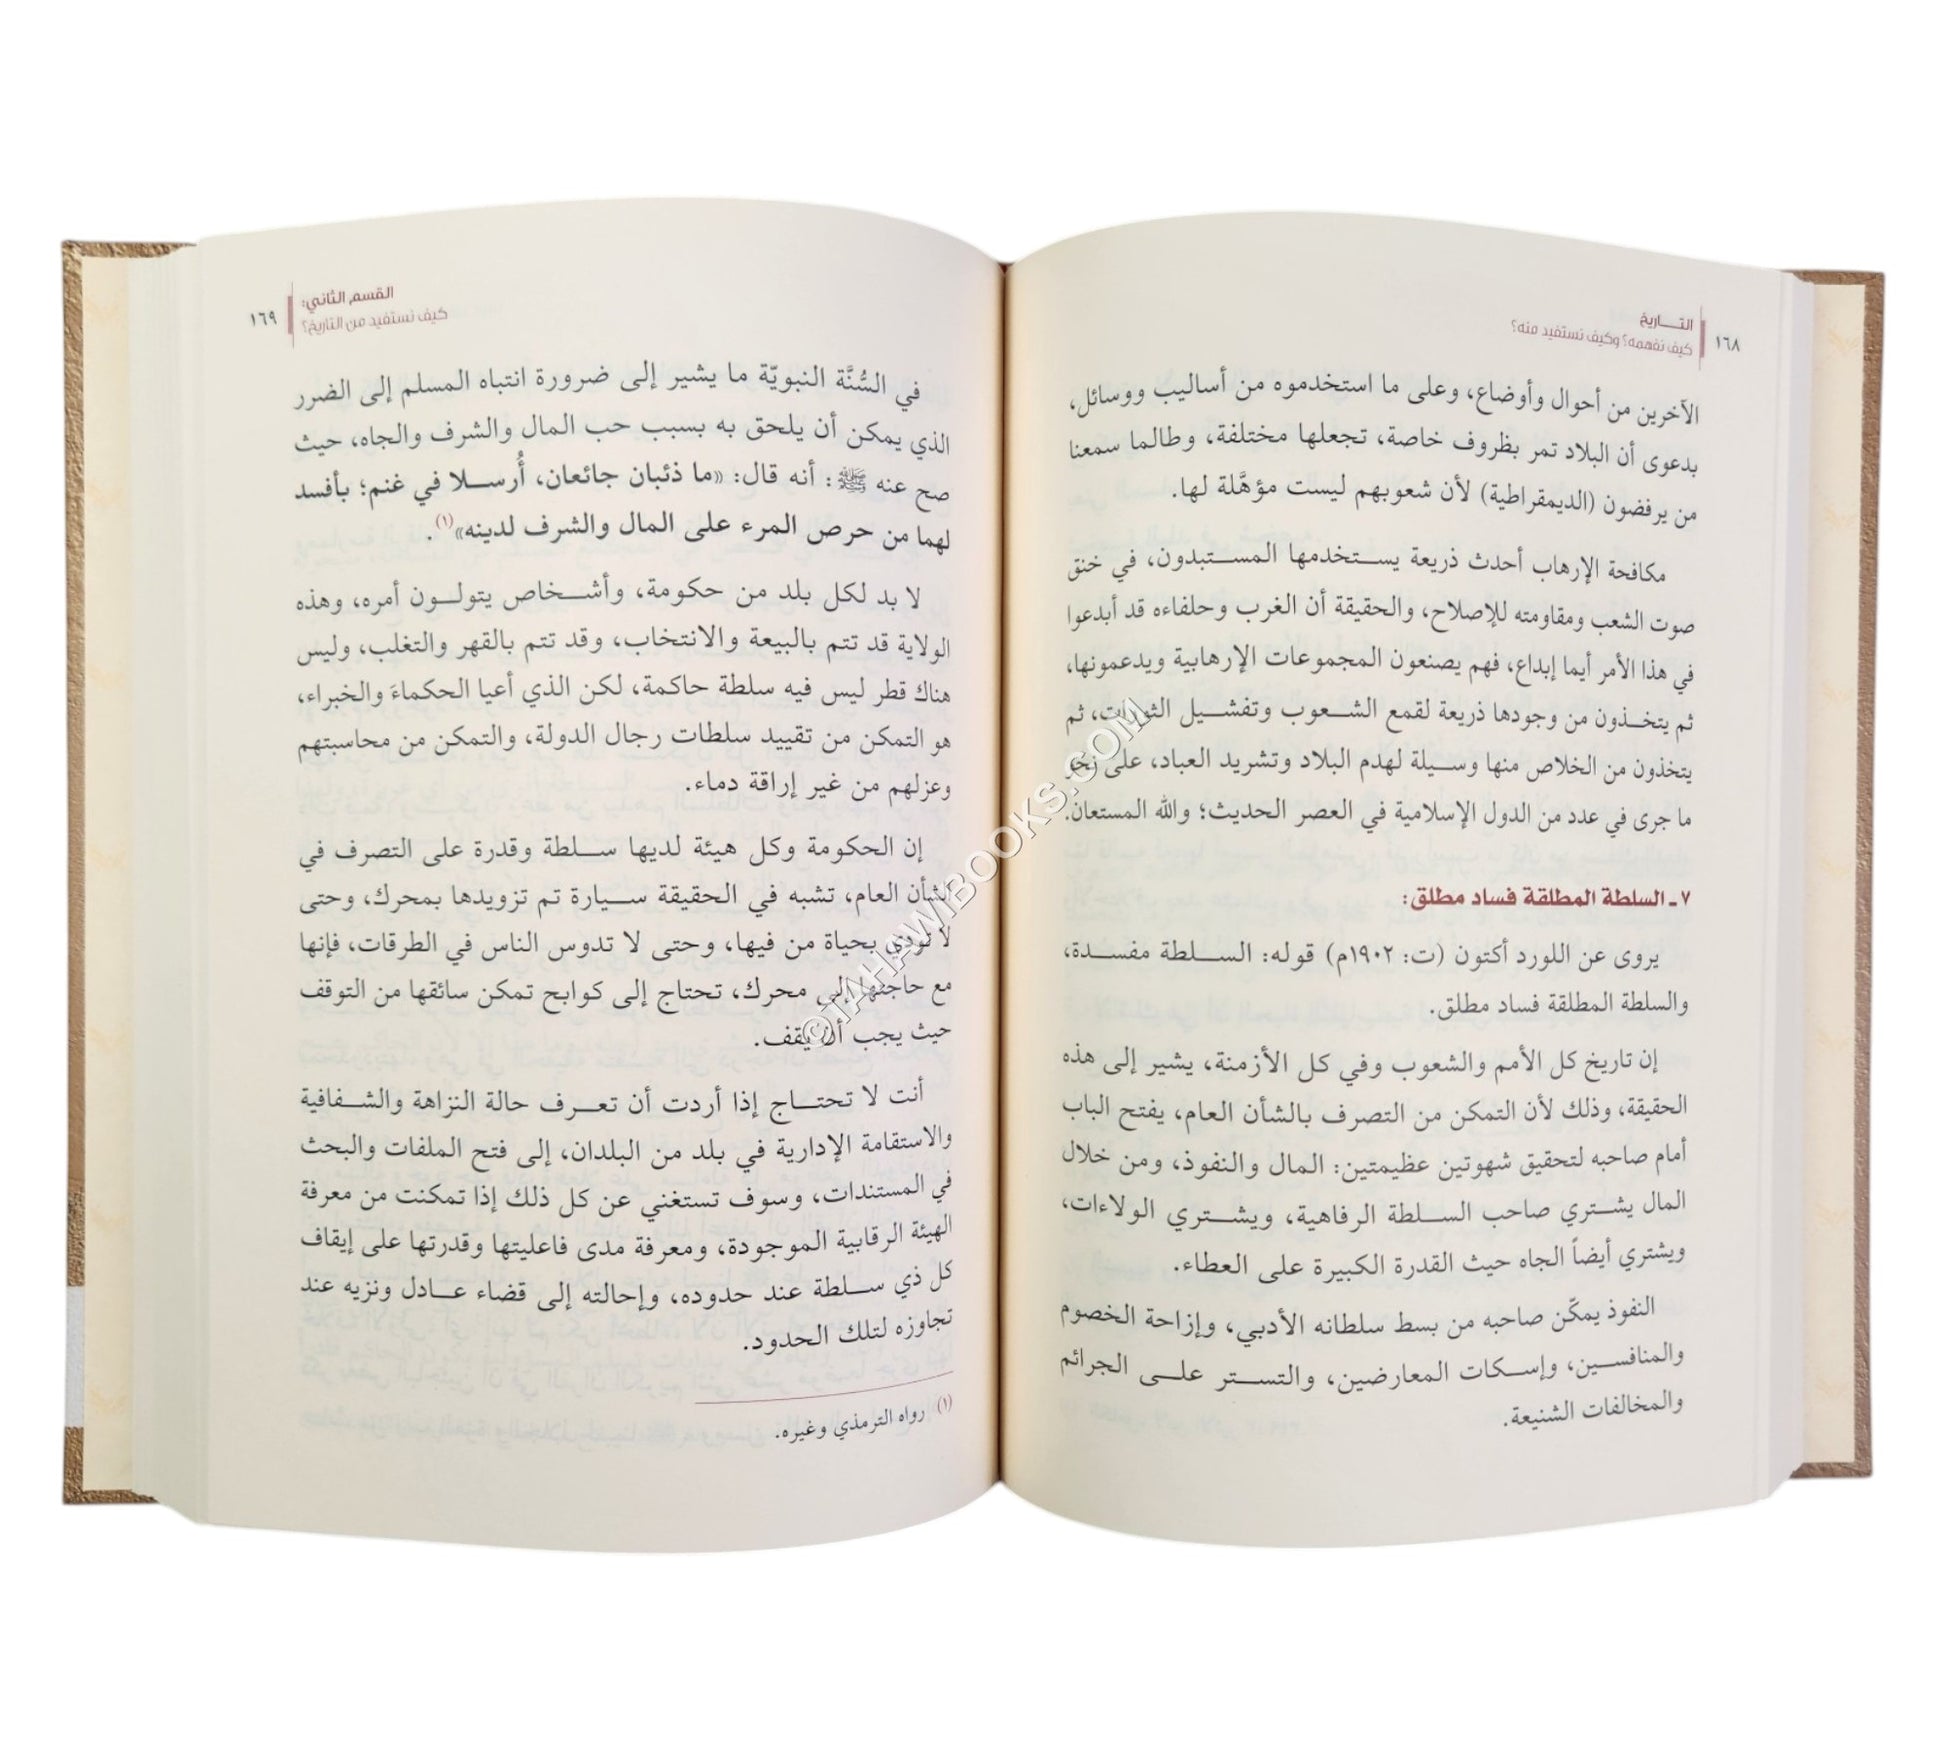 ١٦٨
التـــاريخ
كيف نفهمه؟ وكيف نستفيد منه؟
الآخرين من أحوال وأوضاع، وعلى ما استخدموه من أساليب ووسائل،
بدعوى أن البلاد تمر بظروف خاصة، تجعلها مختلفة، وطالما سمعنا
من يرفضون (الديمقراطية) لأن شعوبهم ليست مؤهَّلة لها.
مكافحة الإرهاب أحدث ذريعة يستخدمها المستبدون، في خنق
صوت الشعب ومقاومته للإصلاح، والحقيقة أن الغرب وحلفاءه قد أبدعوا
في هذا الأمر أيما إبداع، فهم يصنعون المجموعات الإرهابية ويدعمونها،
ثم يتخذون من وجودها ذريعة لقمع الشعوب وتفشيل الثورات، ثم
يتخذون من الخلاص منها وسيلة لهدم البلاد وتشريد العباد، على نحو
ما جرى في عدد من الدول الإسلامية في العصر الحديث؛ والله المستعان.
٧ ـ السلطة المطلقة فساد مطلق:
يروى عن اللورد أكتون (ت: ١٩٠٢م) قوله: السلطة مفسدة،
والسلطة المطلقة فساد مطلق.
إن تاريخ كل الأمم والشعوب وفي كل الأزمنة، يشير إلى هذه
الحقيقة، وذلك لأن التمكن من التصرف بالشأن العام، يفتح الباب
أمام صاحبه لتحقيق شهوتين عظيمتين: المال والنفوذ، ومن خلال
المال يشتري صاحب السلطة الرفاهية، ويشتري الولاءات،
ويشتري أيضاً الجاه حيث القدرة الكبيرة على العطاء.
النفوذ يمكّن صاحبه من بسط سلطانه الأدبي، وإزاحة الخصوم
والمنافسين، وإسكات المعارضين، والتستر على الجرائم
والمخالفات الشنيعة.
القسم الثاني:
كيف نستفيد من التاريخ؟
١٦٩
في السُّنَّة النبويّة ما يشير إلى ضرورة انتباه المسلم إلى الضرر
الذي يمكن أن يلحق به بسبب حب المال والشرف والجاه، حيث
صح عنه ﷺ: أنه قال: «ما ذئبان جائعان، أُرسلا في غنم؛ بأفسد
لهما من حرص المرء على المال والشرف لدينه»(١).
لا بد لكل بلد من حكومة، وأشخاص يتولون أمره، وهذه
الولاية قد تتم بالبيعة والانتخاب، وقد تتم بالقهر والتغلب، وليس
هناك قطر ليس فيه سلطة حاكمة، لكن الذي أعيا الحكماءَ والخبراء،
هو التمكن من تقييد سلطات رجال الدولة، والتمكن من محاسبتهم
وعزلهم من غير إراقة دماء.
إن الحكومة وكل هيئة لديها سلطة وقدرة على التصرف في
الشأن العام، تشبه في الحقيقة سيارة تم تزويدها بمحرك، وحتى
لا تودي بحياة من فيها، وحتى لا تدوس الناس في الطرقات، فإنها
مع حاجتها إلى محرك، تحتاج إلى كوابح تمكن سائقها من التوقف
حيث يجب أن يقف.
أنت لا تحتاج إذا أردت أن تعرف حالة النزاهة والشفافية
والاستقامة الإدارية في بلد من البلدان، إلى فتح الملفات والبحث
في المستندات، وسوف تستغني عن كل ذلك إذا تمكنت من معرفة
الهيئة الرقابية الموجودة، ومعرفة مدى فاعليتها وقدرتها على إيقاف
كل ذي سلطة عند حدوده، وإحالته إلى قضاء عادل ونزيه عند
تجاوزه لتلك الحدود.
(١) رواه الترمذي وغيره.
©TAHAWIBOOKS.COM